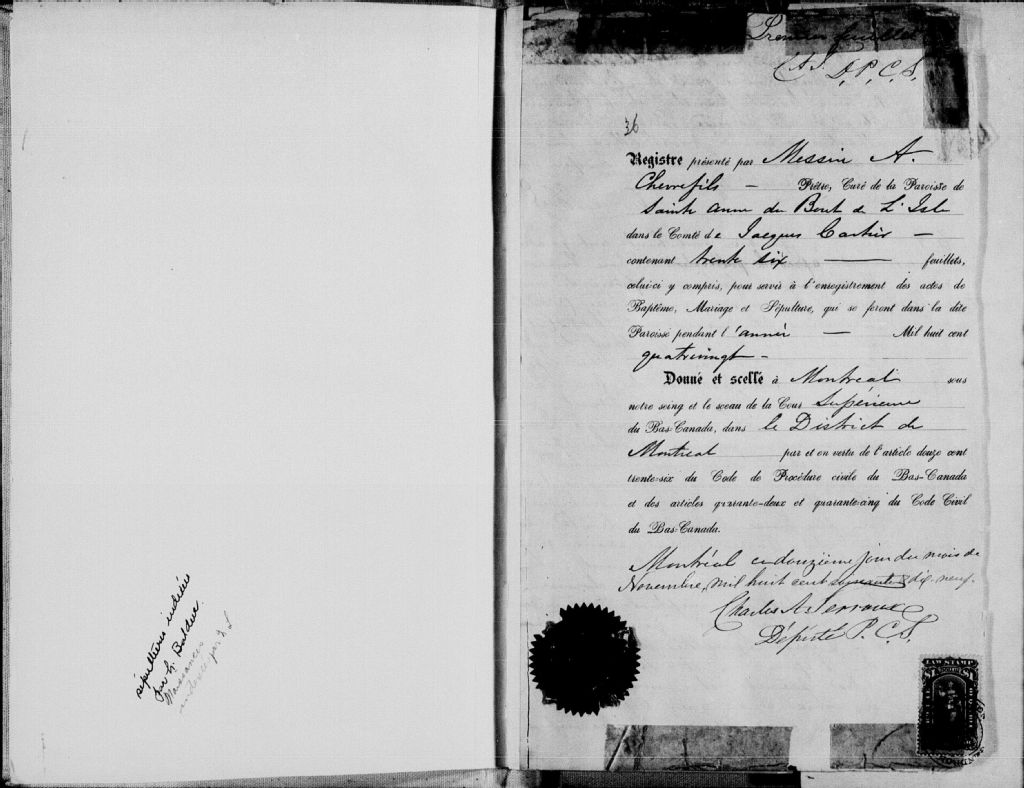 sépultures indexées
par G. Bolduc
Naissances
indexées par
Premier feuillet
C. A. T. D. P. C. S.
36
Registre présenté par Messire A.
Chevrefils — Prêtre, Curé de la Paroisse de
Sainte Anne du Bout de L'Isle
dans le Comté de Jacques Cartier —
contenant trente six — feuillets,
celui-ci y compris, pour servir à l'enregistrement des actes de
Baptême, Mariage et Sépulture, qui se feront dans la dite
Paroisse pendant l'année — Mil huit cent
quatrevingt -
Donné et scellé à Montréal sous
notre seing et le sceau de la Cour Supérieure
du Bas-Canada, dans le District de
Montreal par et en vertu de l'article douze cent
trente-six du Code de Procédure civile du Bas-Canada
et des articles quarante-deux et quarante-cinq du Code Civil
du Bas-Canada.
Montréal ce douzième jour du mois de
Novembre, mil huit cent soixante & dix-neuf.
Charles A. Terroux
Député P. C. S.
LAW STAMP